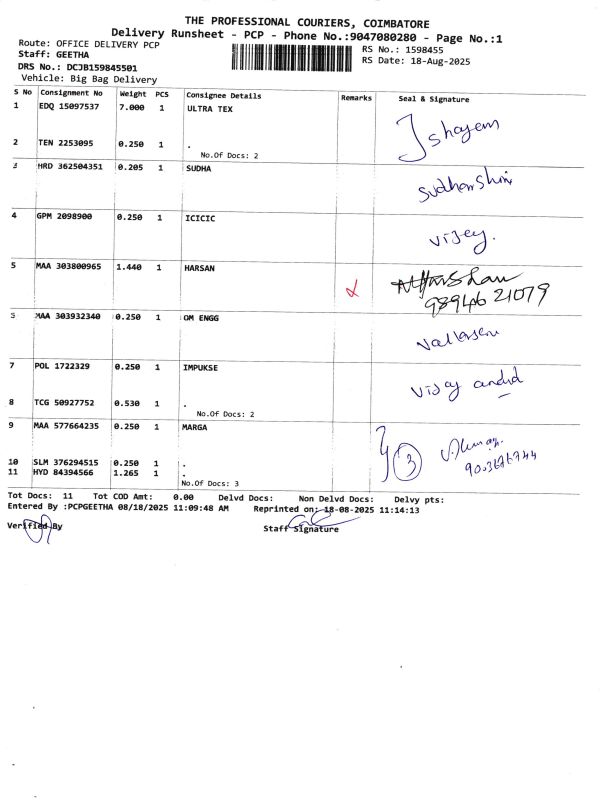 THE PROFESSIONAL COURIERS, COIMBATORE
Delivery Runsheet - PCP - Phone No.:9047080280 - Page No.:1
Route: OFFICE DELIVERY PCP RS No.: 1598455
Staff: GEETHA RS Date: 18-Aug-2025
DRS No.: DCJB159845501
Vehicle: Big Bag Delivery
S No Consignment No Weight PCS Consignee Details Remarks Seal & Signature
1 EDQ 15097537 7.000 1 ULTRA TEX
2 TEN 2253095 0.250 1 .
No.Of Docs: 2
3 HRD 362504351 0.205 1 SUDHA
4 GPM 2098900 0.250 1 ICICIC
vijay.
5 MAA 303800965 1.440 1 HARSAN
98946 21079
MAA 303932340 0.250 1 OM ENGG
7 POL 1722329 0.250 1 IMPUKSE
Vijay anand
8 TCG 50927752 0.530 1 .
No.Of Docs: 2
9 MAA 577664235 0.250 1 MARGA
3
10 SLM 376294515 0.250 1 .
11 HYD 84394566 1.265 1 .
No.Of Docs: 3
Tot Docs: 11 Tot COD Amt: 0.00 Delvd Docs: Non Delvd Docs: Delvy pts:
Entered By :PCPGEETHA 08/18/2025 11:09:48 AM Reprinted on: 18-08-2025 11:14:13
Verified By Staff Signature